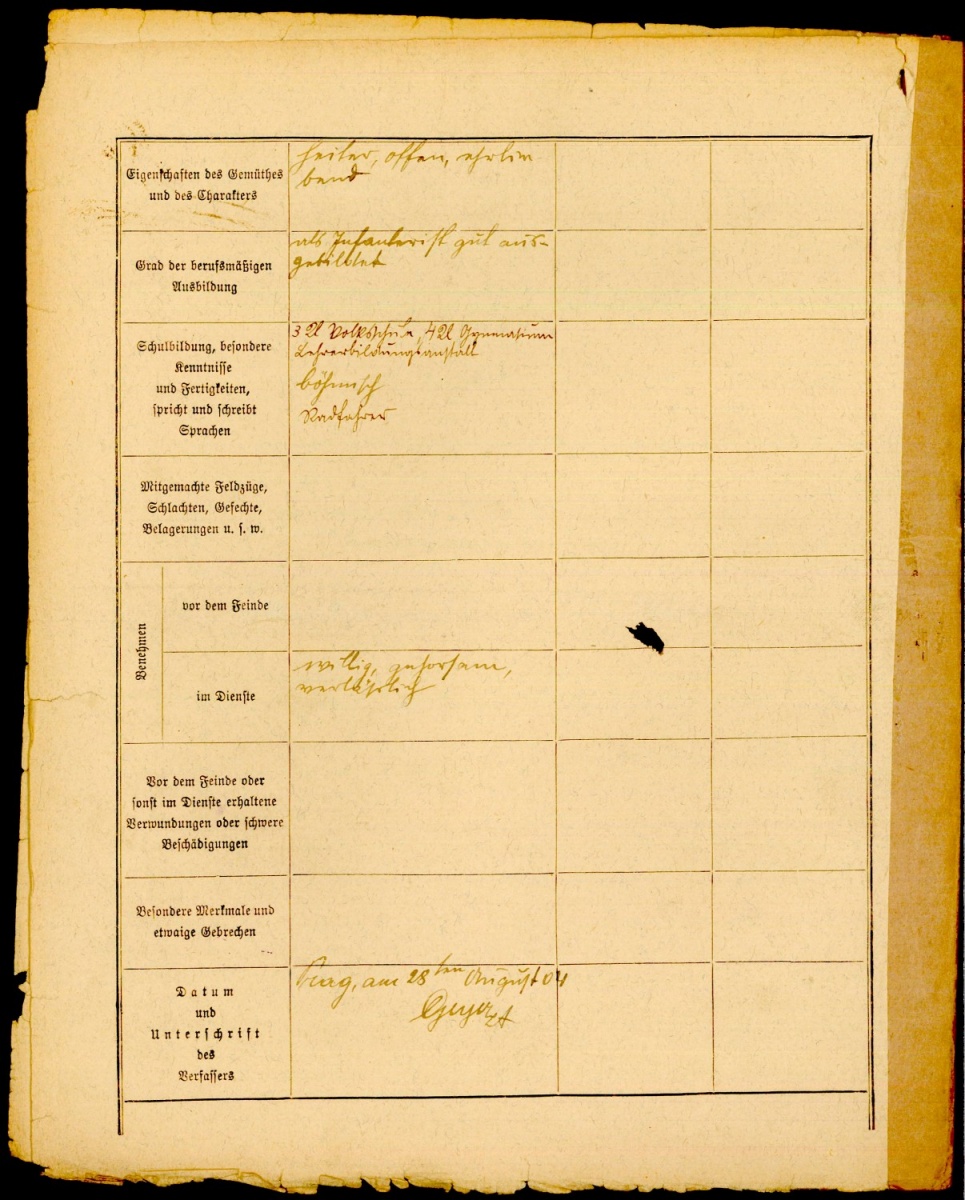 Eigenschaften des Gemüthes
und des Charakters
heiter, offen, ehrlie-
bend
Grad der berufsmäßigen
Ausbildung
als Infanterist gut aus-
gebildet
Schulbildung, besondere
Kenntnisse
und Fertigkeiten,
spricht und schreibt
Sprachen
3 Kl Volksschule, 4 Kl Gymnasium
Lehrerbildungsanstalt
böhmisch
Radfahrer
Mitgemachte Feldzüge,
Schlachten, Gefechte,
Belagerungen u. s. w.
Benehmen
vor dem Feinde
im Dienste
willig, gehorsam,
verläßlich
Vor dem Feinde oder
sonst im Dienste erhaltene
Verwundungen oder schwere
Beschädigungen
Besondere Merkmale und
etwaige Gebrechen
Datum
und
Unterschrift
des
Verfassers
Prag, am 28ten August 04